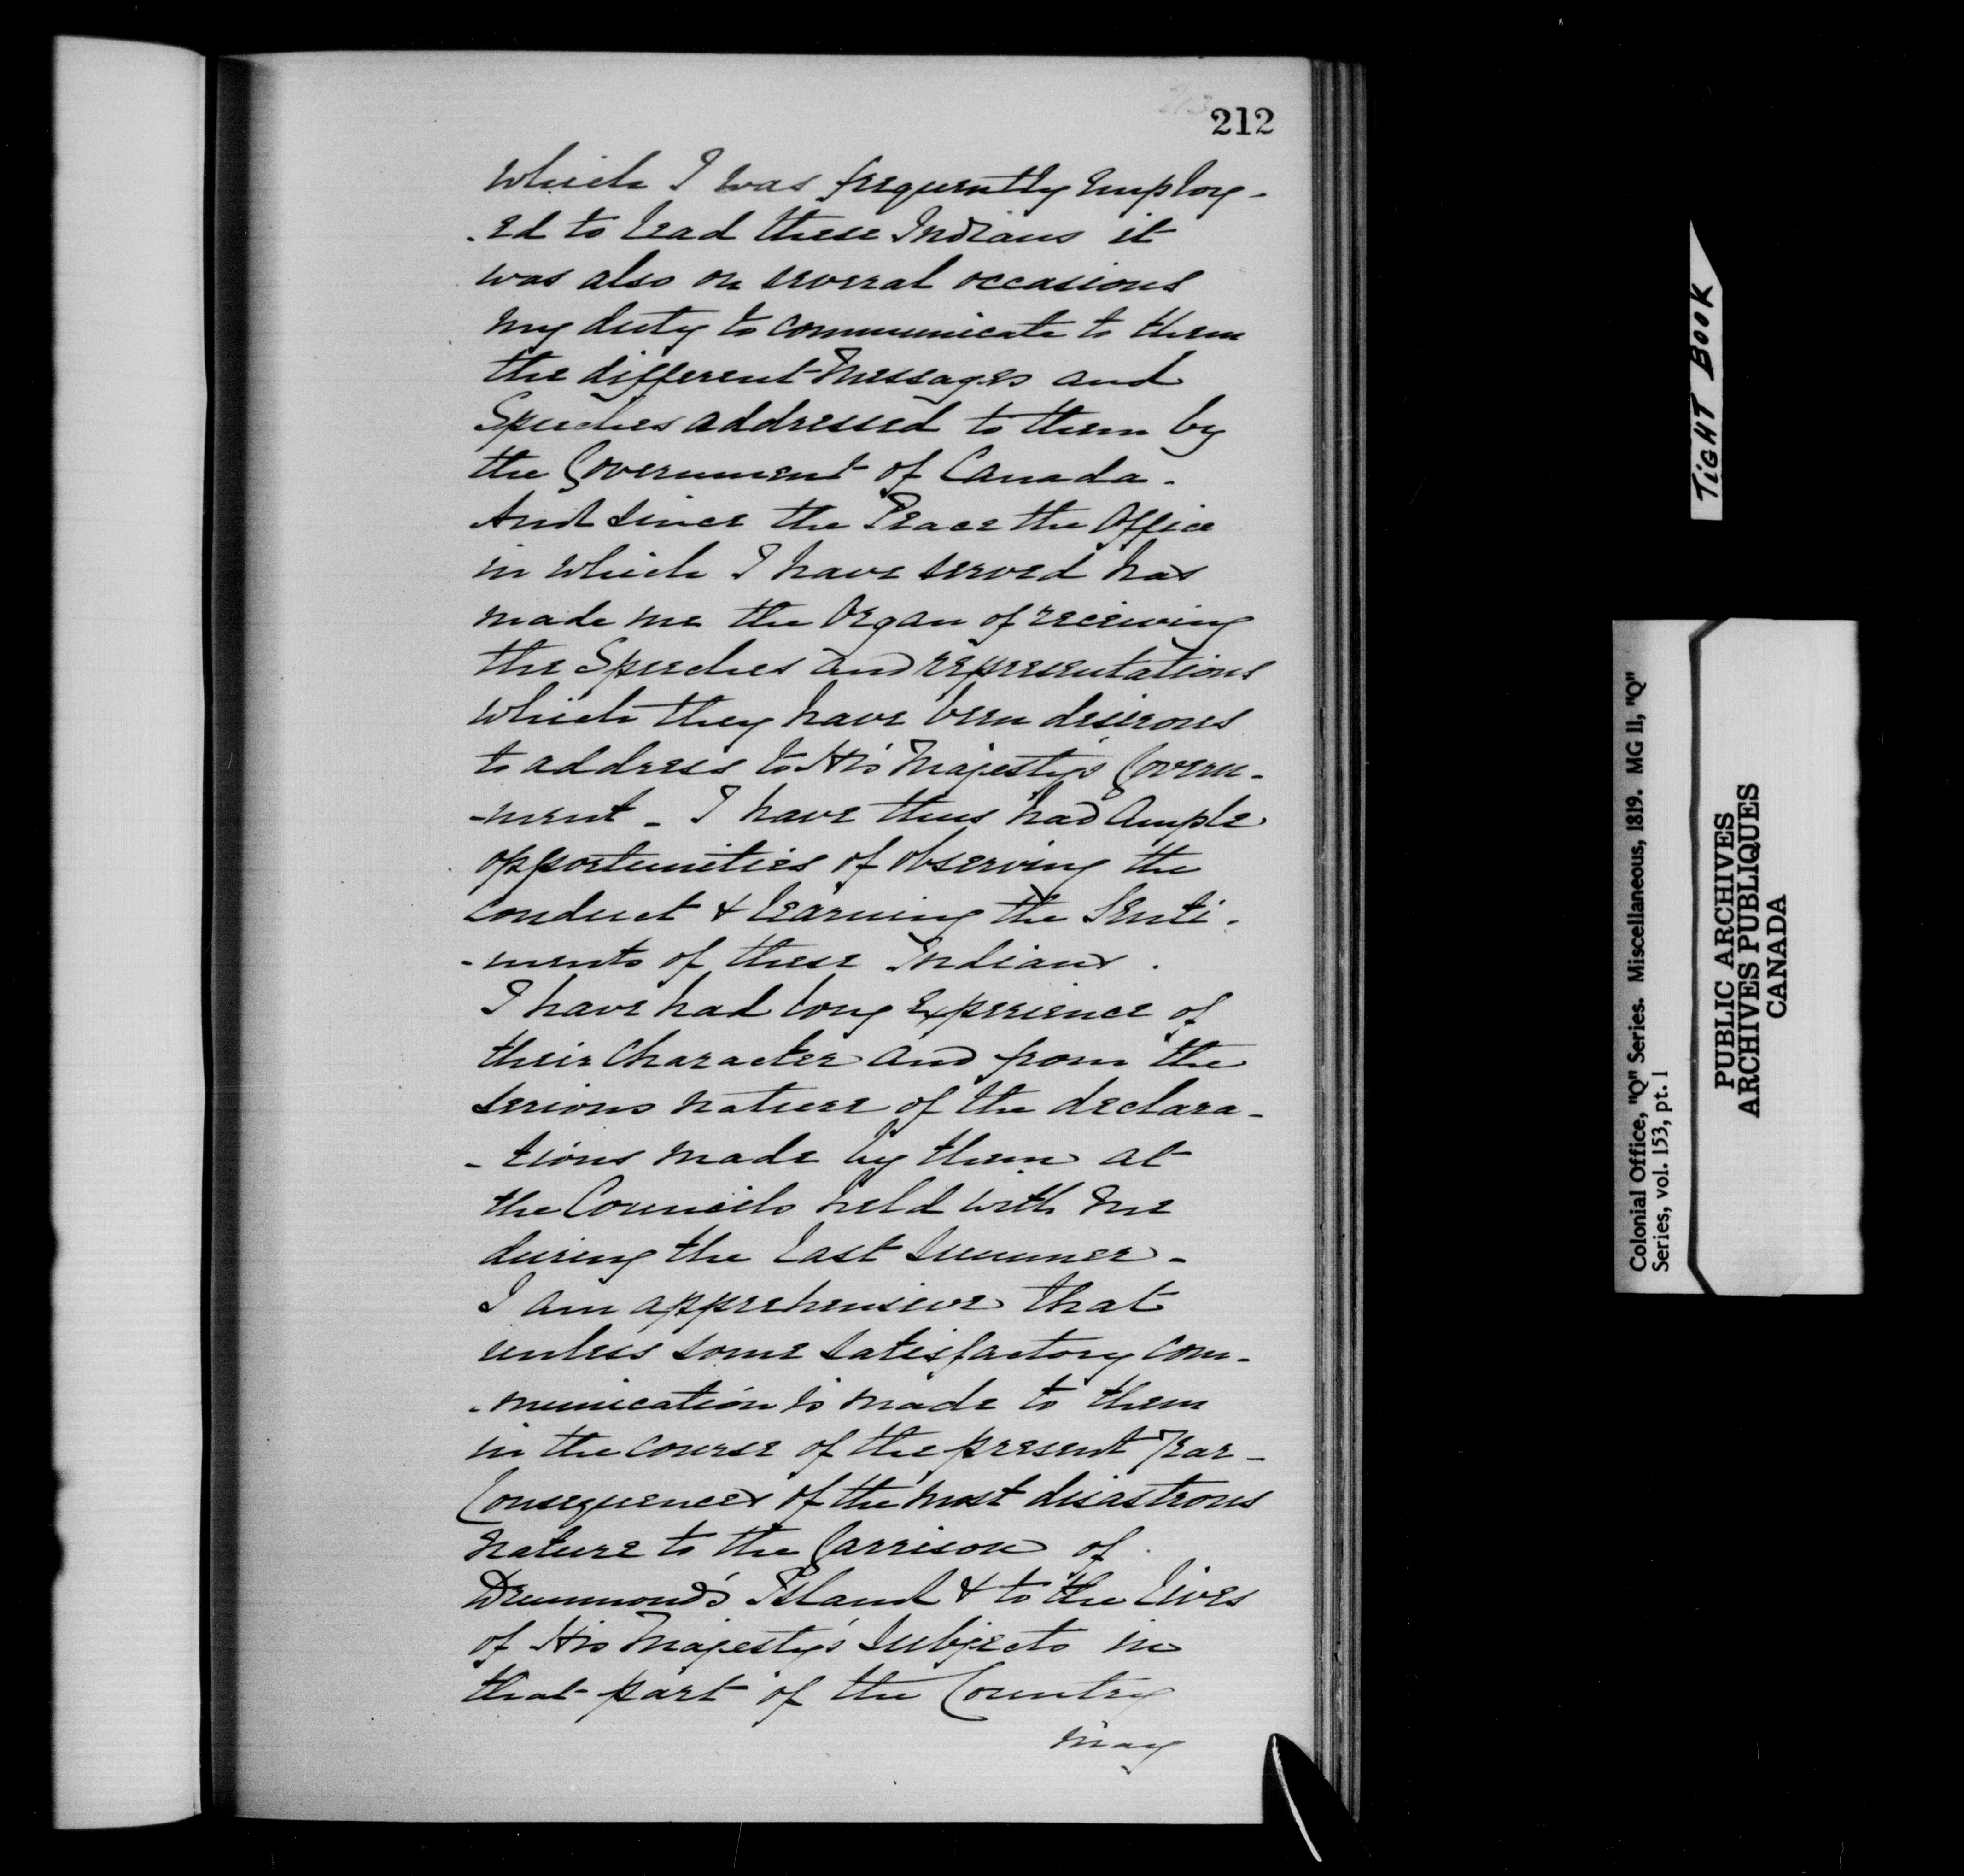 212
which I was frequently employ-
-ed to lead these Indians it
was also on several occasions
my duty to communicate to them
the different Messages and
Speeches addressed to them by
the Government of Canada.
And since the Peace the Office
in which I have served has
made me the Organ of receiving
the Speeches and representations
which they have been desirous
to address to His Majesty's Govern-
-ment - I have thus had ample
opportunities of observing the
conduct & learning the Senti-
-ments of these Indians.
I have had long experience of
their Character and from the
serious nature of the declara-
-tions made by them at
the Councils held with me
during the last summer -
I am apprehensive that
unless some satisfactory com-
-munication is made to them
in the course of the present Year -
Consequences of the most disastrous
nature to the Garrison of
Drummond's Island & to the lives
of His Majesty's Subjects in
that part of the Country
may
TIGHT BOOK
Colonial Office, "Q" Series. Miscellaneous, 1819. MG 11, "Q"
Series, vol. 153, pt. 1
PUBLIC ARCHIVES
ARCHIVES PUBLIQUES
CANADA